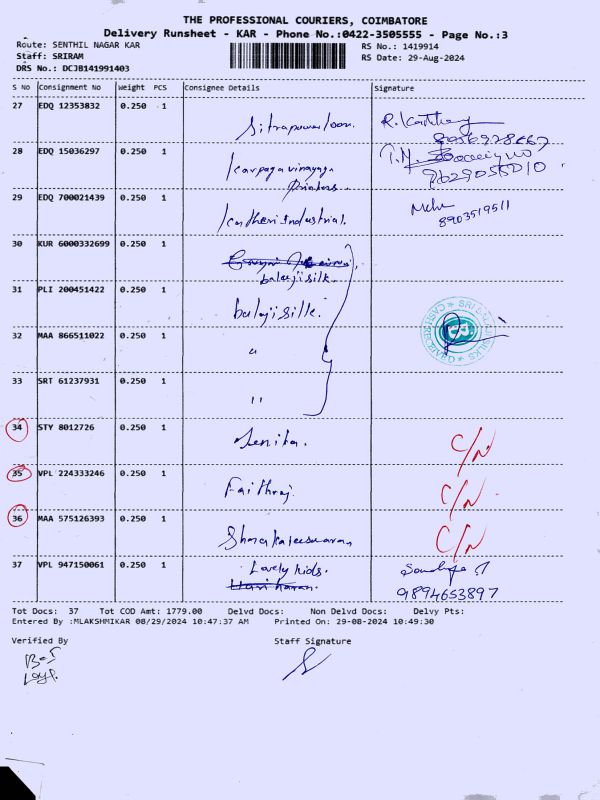 THE PROFESSIONAL COURIERS, COIMBATORE
Delivery Runsheet - KAR - Phone No.:0422-3505555 - Page No.:3
Route: SENTHIL NAGAR KAR RS No.: 1419914
Staff: SRIRAM RS Date: 29-Aug-2024
DRS No.: DCJB141991403
S No Consignment No Weight PCS Consignee Details Signature
27 EDQ 12353832 0.250 1 Sitrapowerloom. R.
28 EDQ 15036297 0.250 1 Karpagavinayaga
Printers.
29 EDQ 700021439 0.250 1 Kadheri industrial.
8903519511
30 KUR 6000332699 0.250 1
balaji silk.
31 PLI 200451422 0.250 1 balaji silk.
32 MAA 866511022 0.250 1 "
33 SRT 61237931 0.250 1 "
34 STY 8012726 0.250 1 C/N
35 VPL 224333246 0.250 1 Faithraj C/N
36 MAA 575126393 0.250 1 C/N
37 VPL 947150061 0.250 1 Lovely kids.
Hari haran. 9894653897
Tot Docs: 37 Tot COD Amt: 1779.00 Delvd Docs: Non Delvd Docs: Delvy Pts:
Entered By :MLAKSHMIKAR 08/29/2024 10:47:37 AM Printed On: 29-08-2024 10:49:30
Verified By Staff Signature